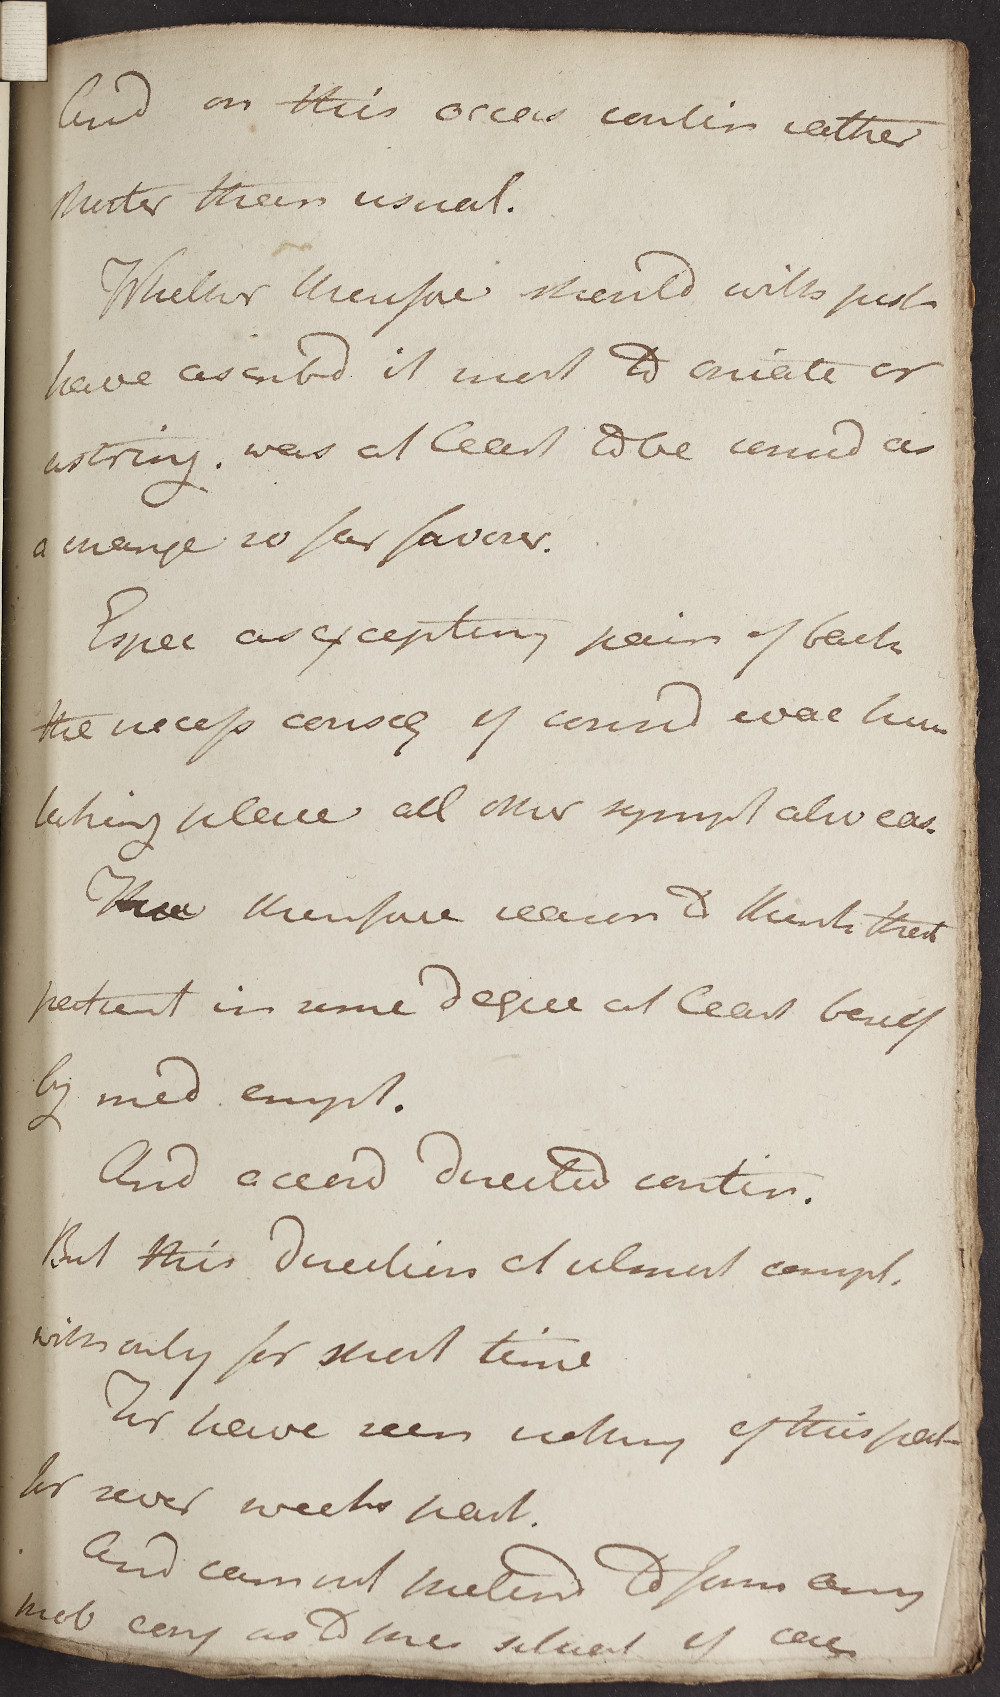 And on this occas contin rather
shorter than usual.
Whether therefore should with just
have ascribd it most to opiate or
astring. was at least to be consid as
a change so far favorer.
Espec as excepting pain of back
the necess conseq of consid evac hum
taking place all other sympt also eas.
There therefore reason to think that
patient in some degree at least benef
by med empl.
And accord directed contin.
But this direction at utmost compl.
with only for short time
For have seen nothing of this pat
for sever weeks past.
And cannot pretend to form any
prob conj as to pres situat of case